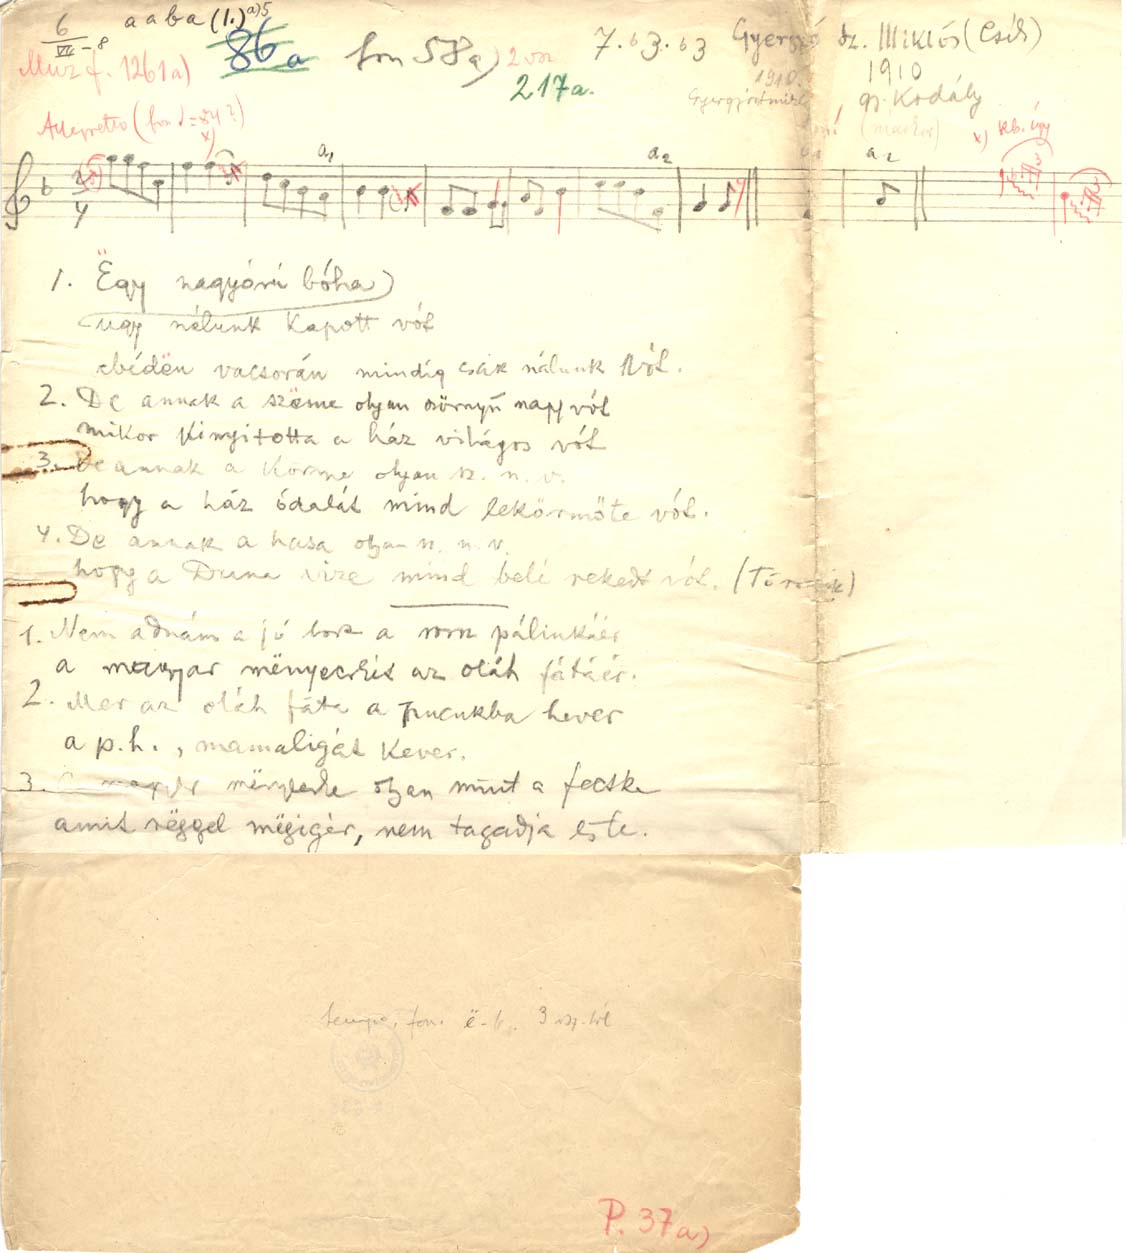 6 a a b a (1.) a)5
VII - 8
86a fon 58a) 2 vsz 7.63.63 Gyergyó sz. Miklós (Csík)
Muz f. 1261a) 1910 1910
217a. gy. Kodály
Allegretto (fon = 84?) x) kb. úgy
a1 a2 a2
2
4
1. Ëgy nagyórú bóha
úgy nálunk kapott vót
ebédën vacsorán mindig csak nálunk vót.
2. De annak a szëme olyan szörnyű nagy vót
mikor kinyitotta a ház világos vót
3. De annak a körme olyan sz. n. v.
hogy a ház ódalát mind lekörmöte vót.
4. De annak a hasa olyan sz. n. v.
hogy a Duna vize mind belé rekedt vót.
1. Nem adnám a jó bort a rossz pálinkáér
a magyar mënyecskét az oláh fátáér.
2. Mer az oláh fáta a pucukba hever
a p.h., mamaligát kever.
3. A magyar mënyecske olyan mint a fecske
amit rëggel mëgigér, nem tagadja este.
tempo, fon. ë-k, 3 vsz.
P. 37a)